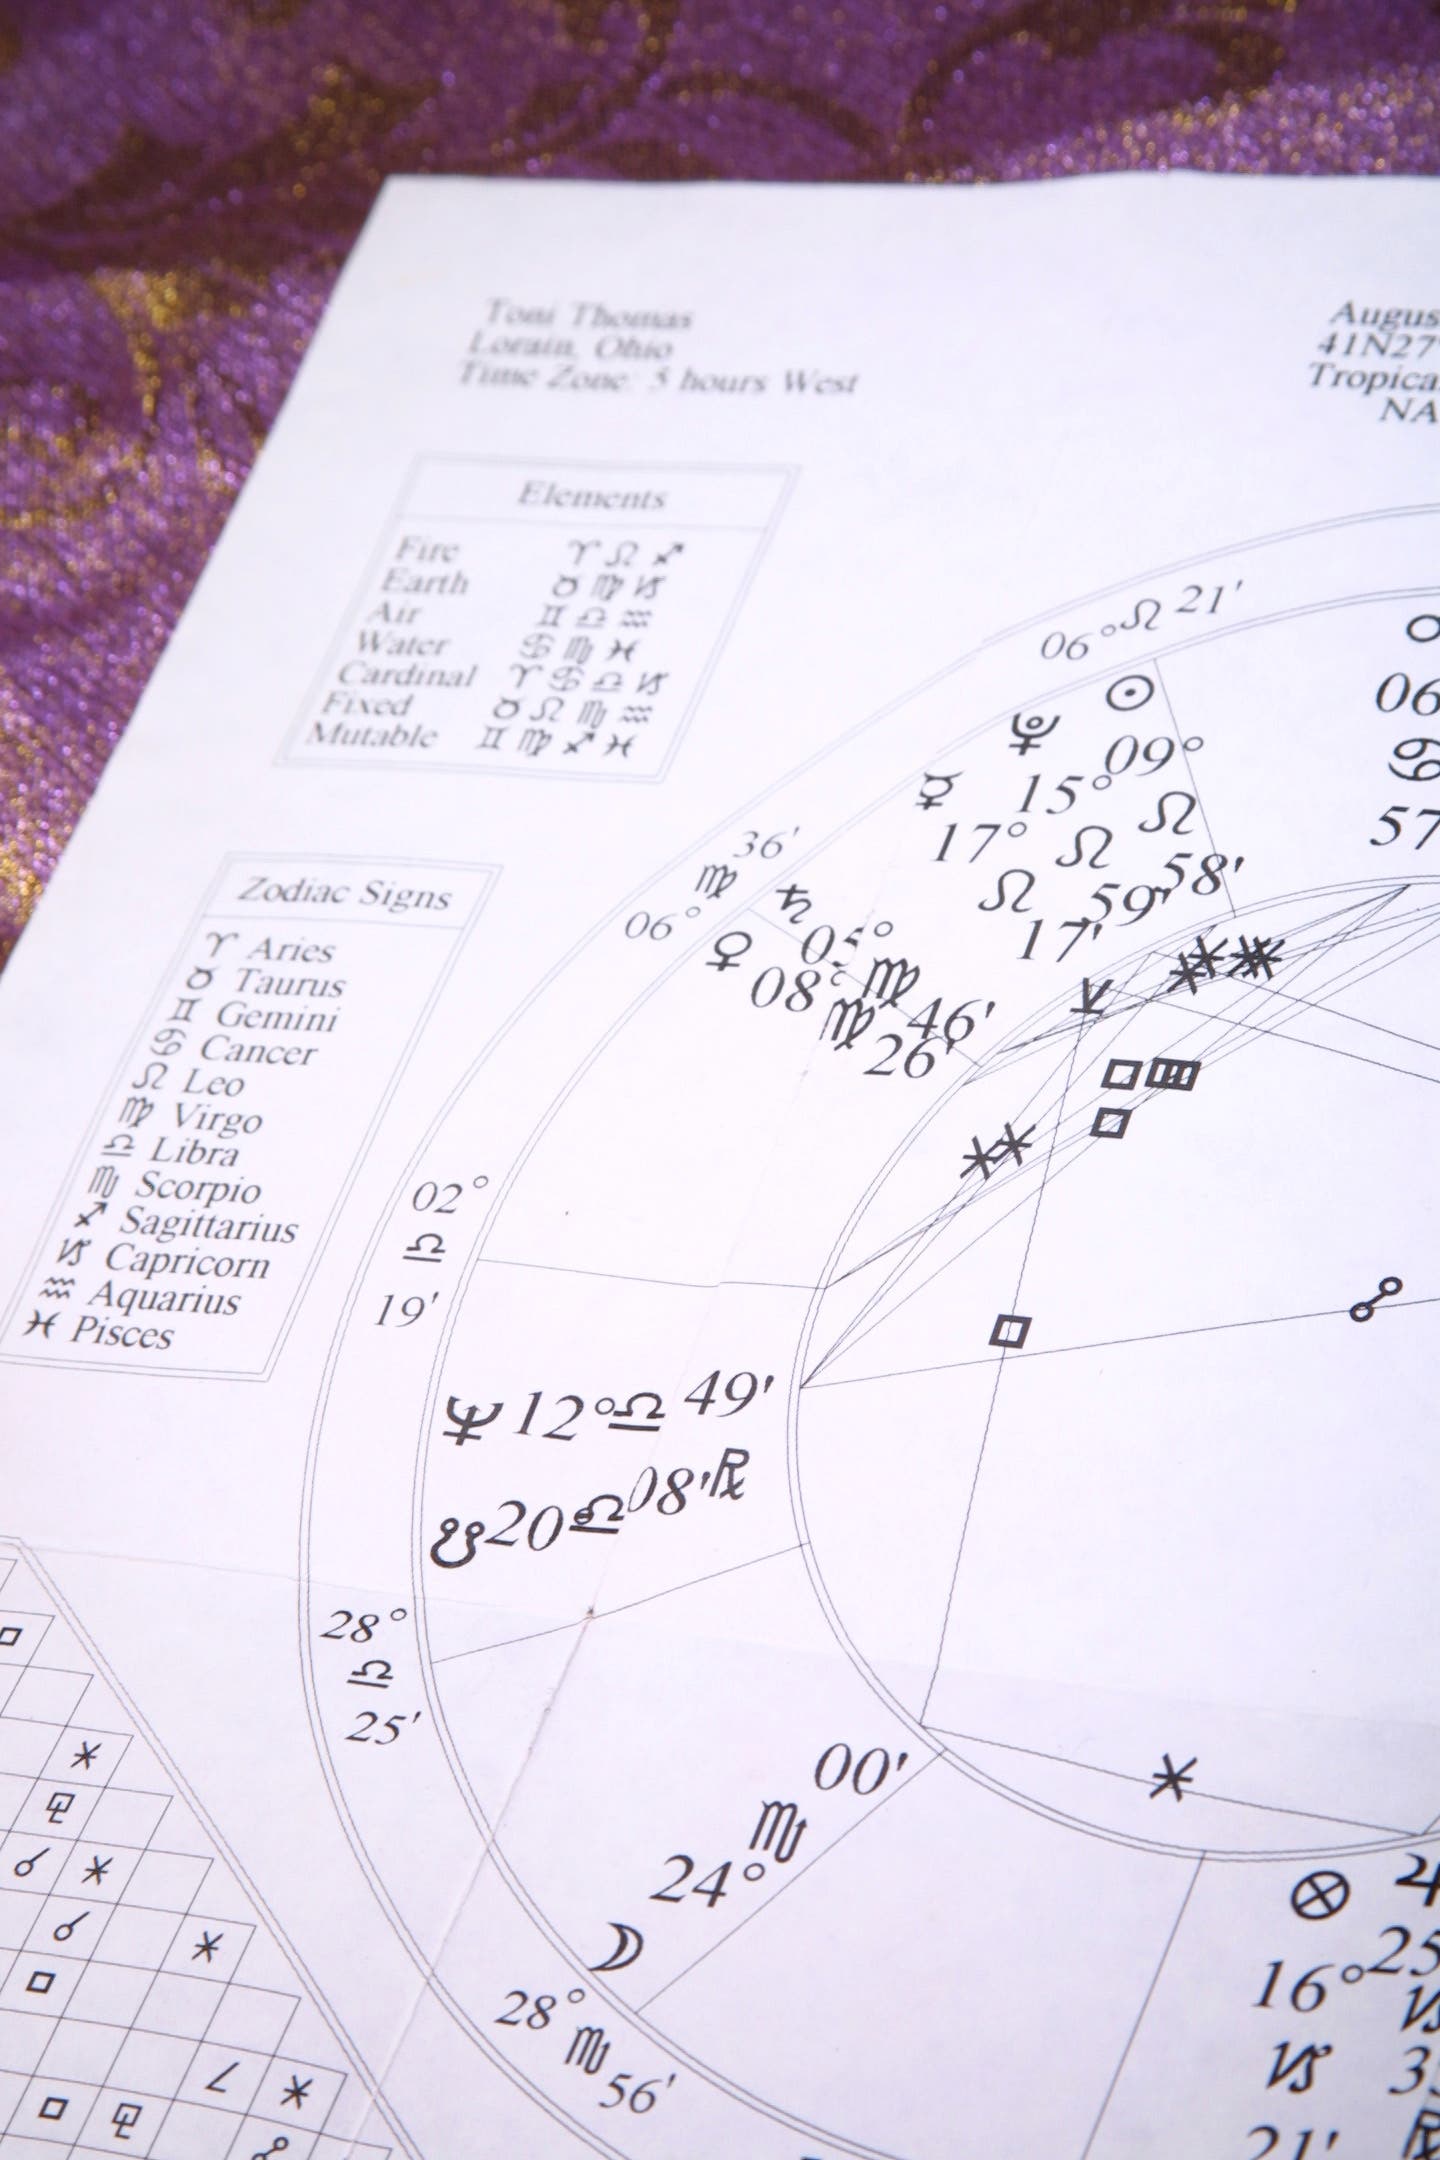 Toni Thomas
Lorain, Ohio
Time Zone: 5 hours West
Augus
41N27'
Tropica
NA
Elements
Fire ♈ ♌ ♐
Earth ♉ ♍ ♑
Air ♊ ♎ ♒
Water ♋ ♏ ♓
Cardinal ♈ ♋ ♎ ♑
Fixed ♉ ♌ ♏ ♒
Mutable ♊ ♍ ♐ ♓
Zodiac Signs
♈ Aries
♉ Taurus
♊ Gemini
♋ Cancer
♌ Leo
♍ Virgo
♎ Libra
♏ Scorpio
♐ Sagittarius
♑ Capricorn
♒ Aquarius
♓ Pisces
06° ♌ 21'
06
♋
57
☉ 09° ♌ 58'
♇ 15° ♌ 59'
☿ 17° ♌ 17'
06° ♍ 36'
♄ 05° ♍ 46'
♀ 08° ♍ 26'
02° ♎ 19'
♆ 12° ♎ 49'
☋ 20 ♎ 08' ℞
28° ♎ 25'
☽ 24° ♏ 00'
28° ♏ 56'
⊗ 16° ♑ 21'
♃ 25 ♑ 3 ℞